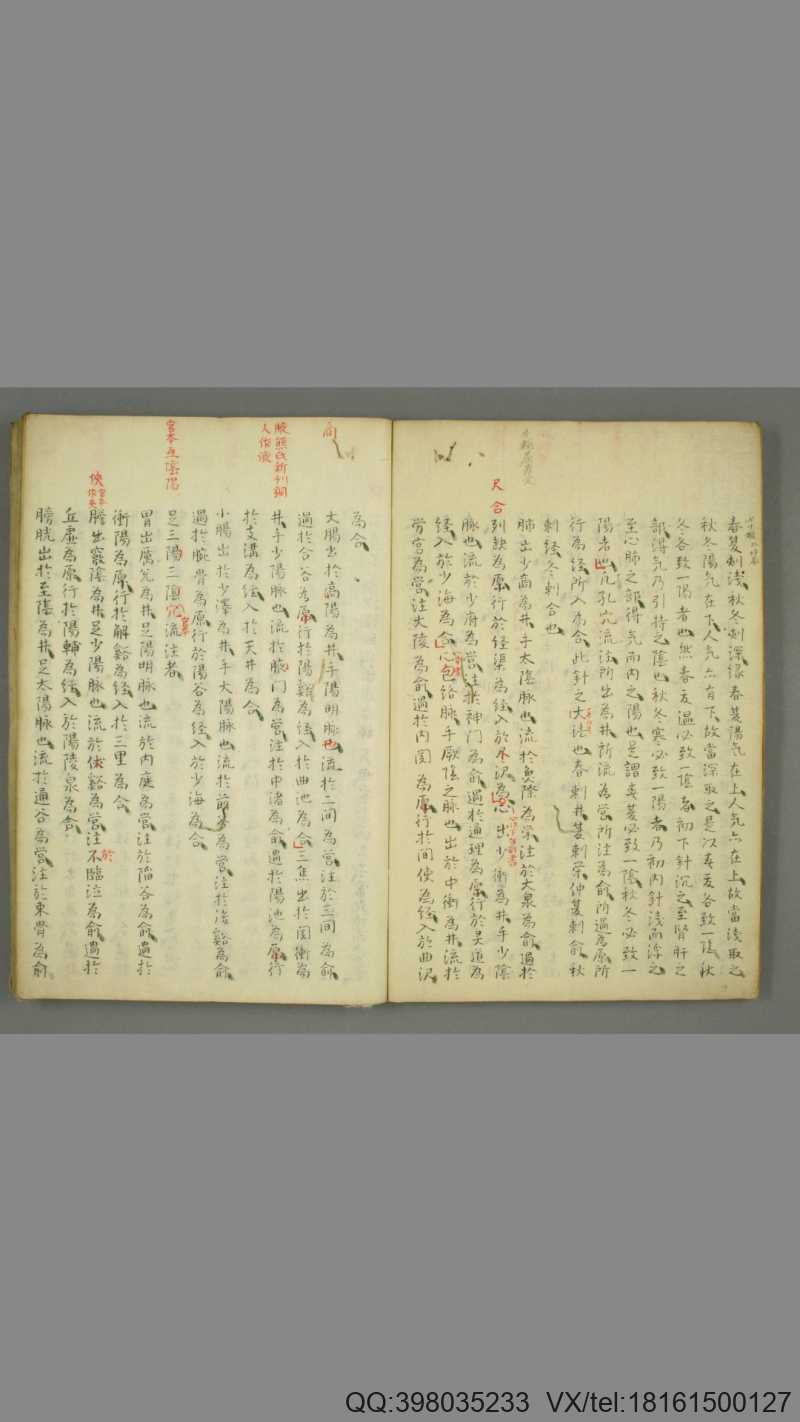 春夏刺淺秋冬刺深緣春夏陽気在上人気亦在上故當淺取之
秋冬陽気在下人気亦有下故當深取之是以春夏各致一陰秋
冬各致一陽者也然春夏溫必致一陰者初下針沉之至腎肝之
部得気乃引持之陰也秋冬寒必致一陽者乃初內針淺而浮之
至心肺之部得気而內之陽也是謂春夏必致一陰秋冬必致一
陽者也凡孔穴流注所出為井所流為营所注為俞所過為原所
行為経所入為合此針之大法也春刺井夏刺荣仲夏刺俞秋
刺経冬刺合也
肺出少商為井手太陰脉也流於魚際為栄注於大泉為俞過於
列缺為原行於経渠為経入於尺沢為合心出少衝為井手少陰
脉也流於少府為营注於神门為俞過於通理為原行於灵道為
経入於少海為合心包络脉手厥陰之脉也出於中衝為井流於
劳宮為营注大陵為俞過於内関為原行於间使為経入於曲沢
尺 合
為合
大腸出於商陽為井手陽明脉也流於二间為营注於三间為俞
過於合谷為原行於陽谿為経入於曲池為合三焦出於関衝為
井手少陽脉也流於腋门為营注於中渚為俞過於陽池為原行
於支溝為経入於天井為合
小腸出於少澤為井手太陽脉也流於前谷為营注於後谿為俞
過於腕骨為原行於陽谷為経入於少海為合
足三陽三陰穴流注者
胃出厲兌為井足陽明脉也流於内庭為营注於陷谷為俞過於
衝陽為原行於解谿為経入於三里為合
膽出竅陰為井足少陽脉也流於俠谿為营注於臨泣為俞過於
丘虚為原行於陽輔為経入於陽陵泉為合
膀胱出於至陰為井足太陽脉也流於通谷為营注於束骨為俞
商
腋熊氏新刊銅
人作液
宮本三陰陽
俠
QQ:398035233 VX/tel:18161500127